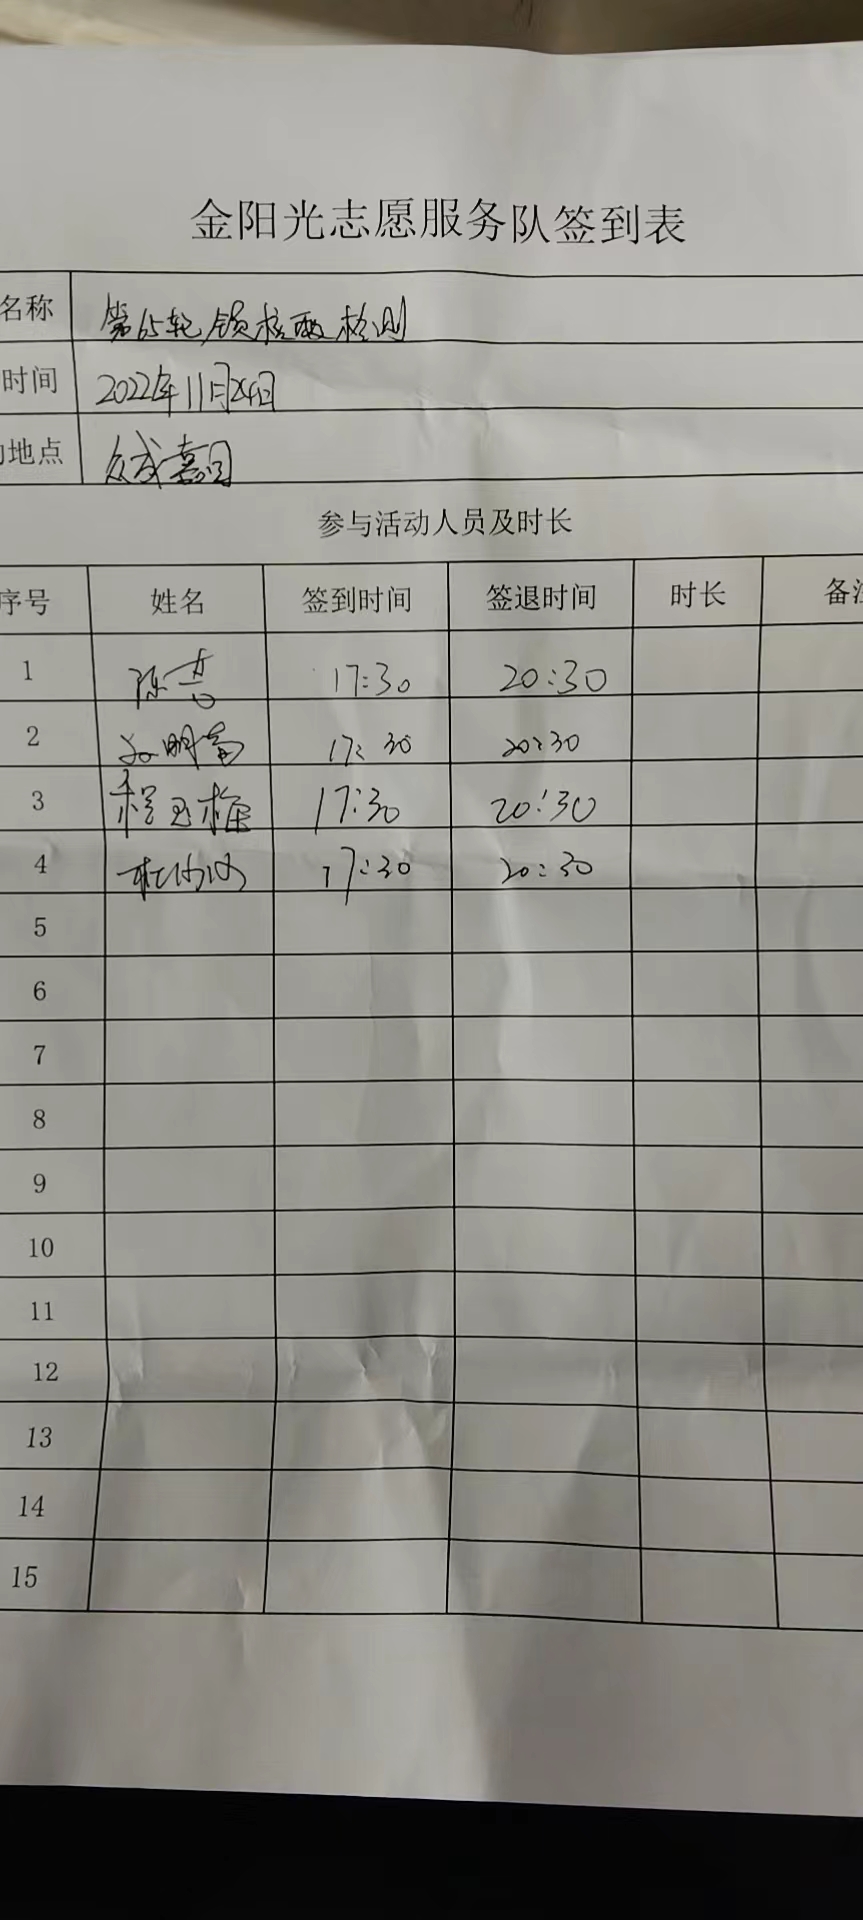 金阳光志愿服务队签到表
名称 第65轮全员核酸检测
时间 2022年11月24日
地点 众成嘉园
参与活动人员及时长
序号 姓名 签到时间 签退时间 时长 备注
1 陈吉 17:30 20:30
2 明富 17:30 20:30
3 程玉梅 17:30 20:30
4 杜 17:30 20:30
5
6
7
8
9
10
11
12
13
14
15